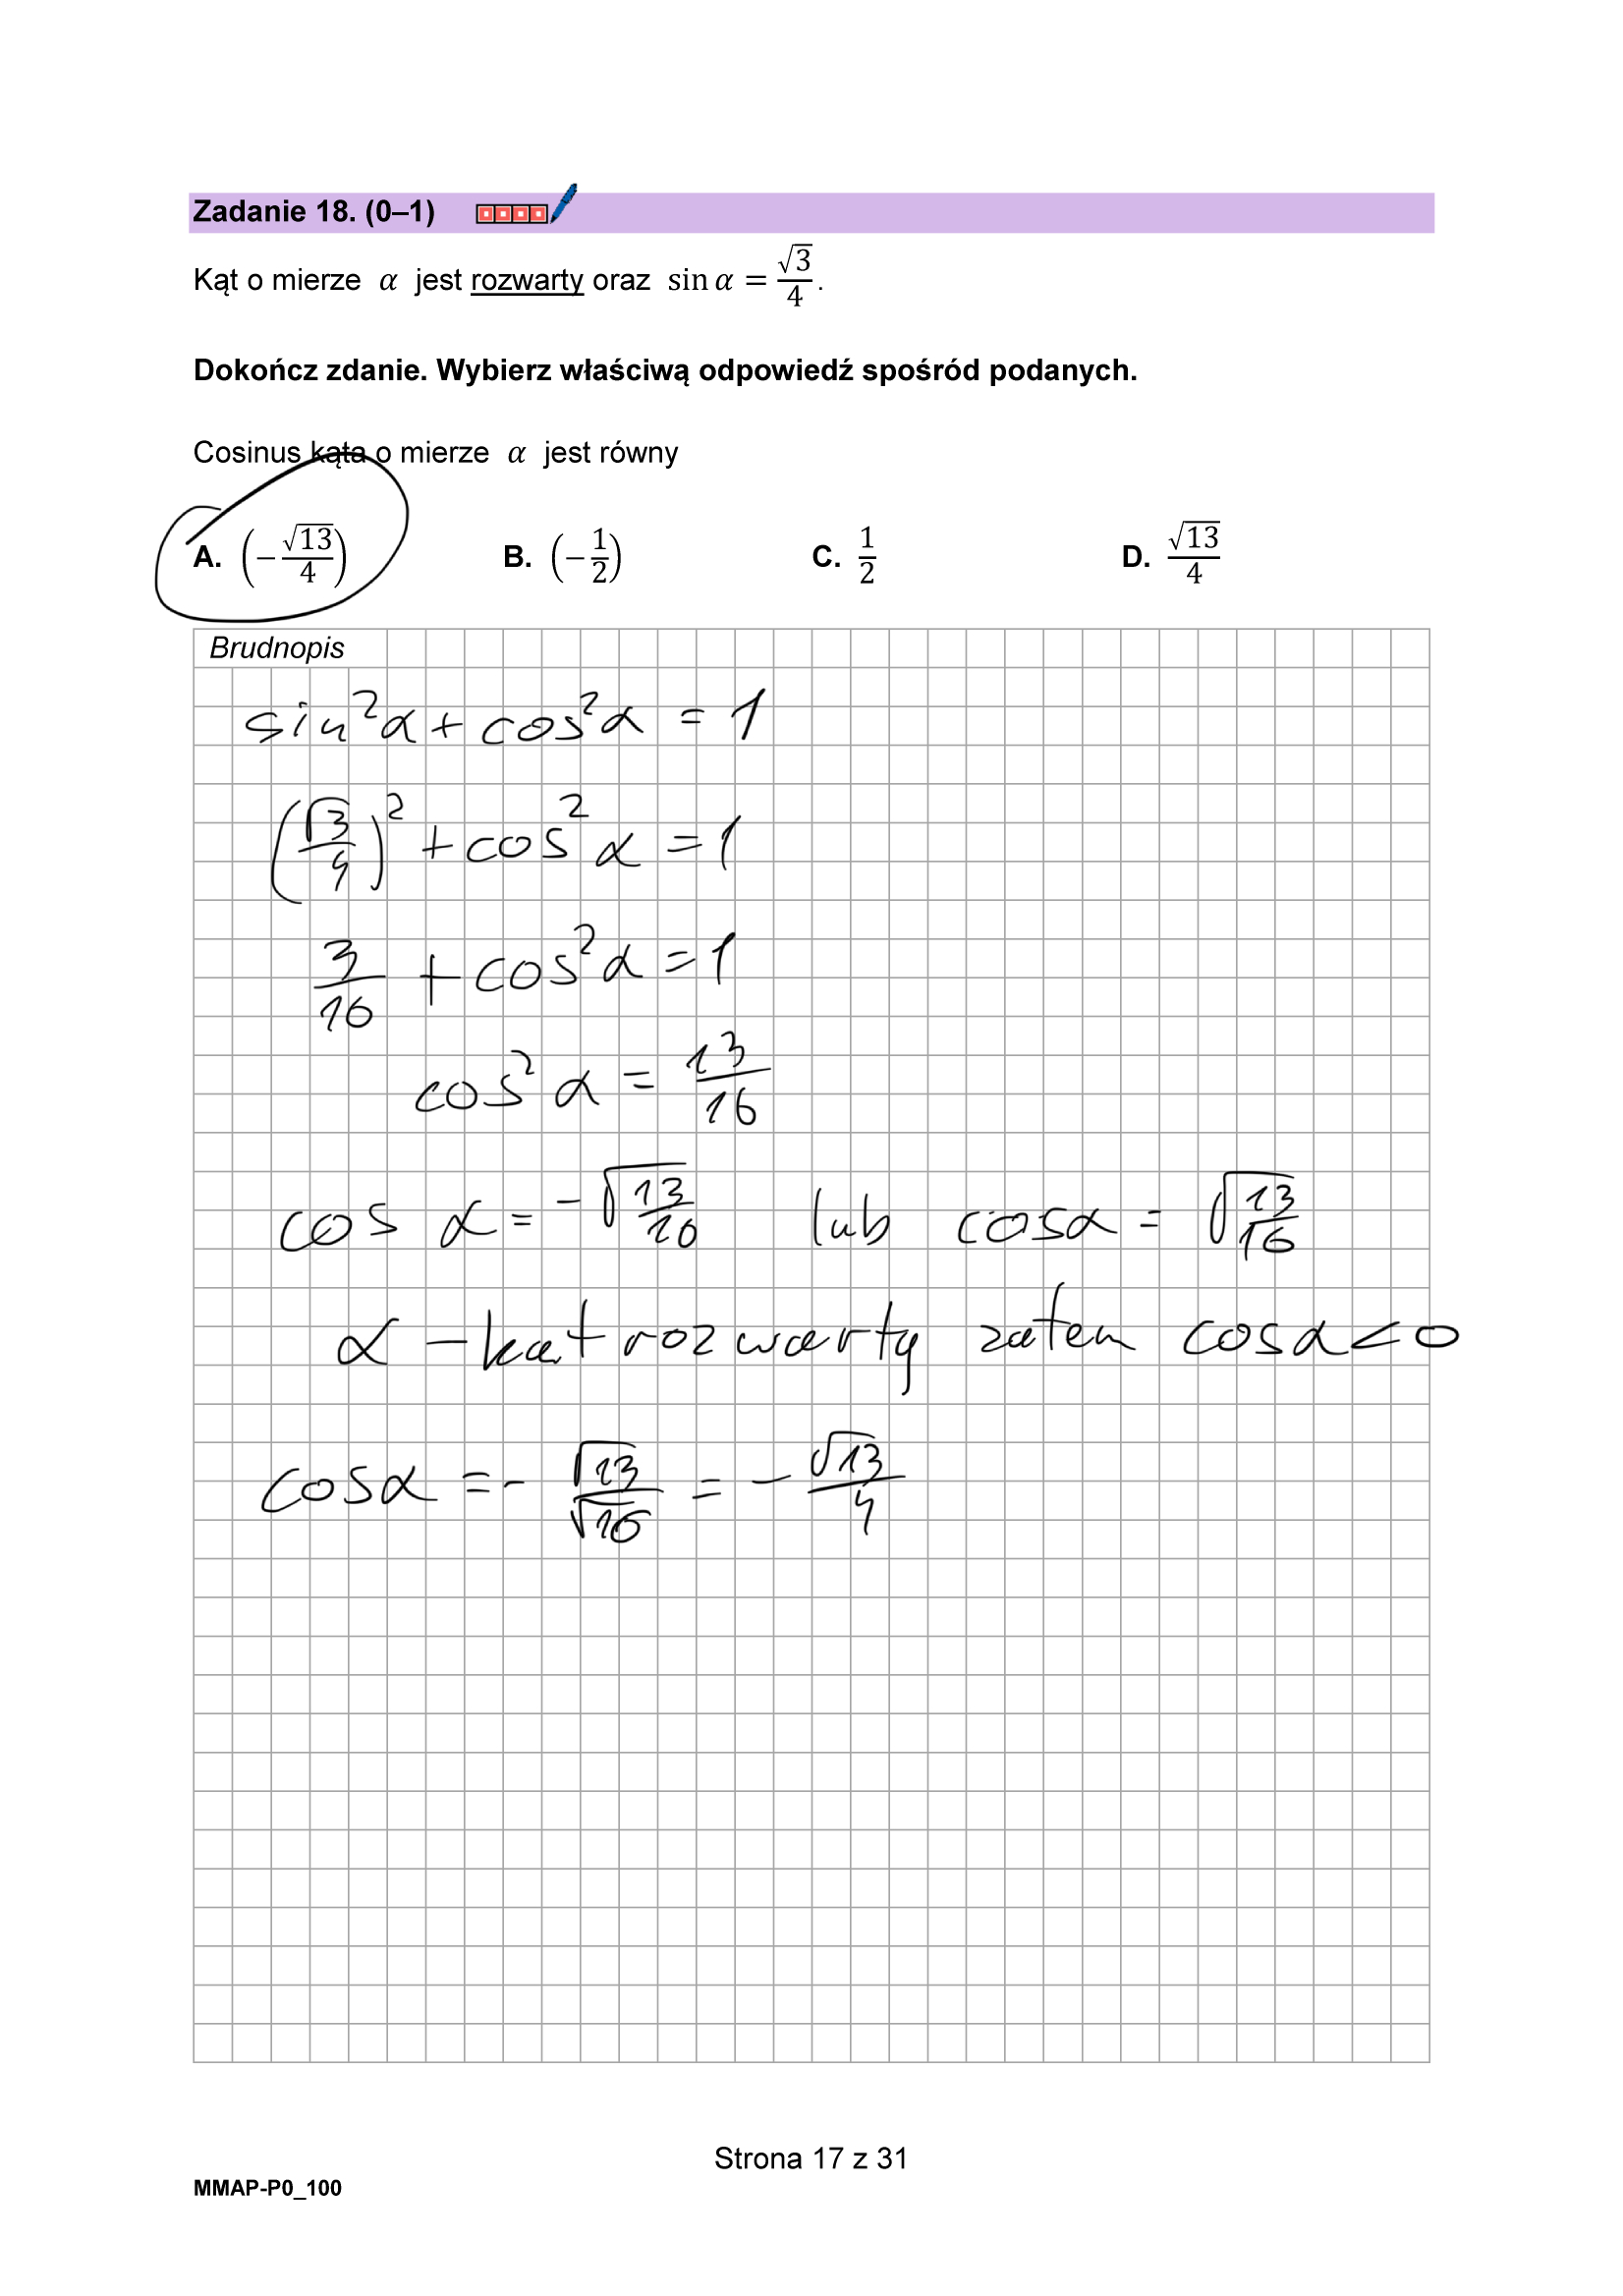 Zadanie 18. (0–1)
Kąt o mierze α jest rozwarty oraz sin α = √3/4.
Dokończ zdanie. Wybierz właściwą odpowiedź spośród podanych.
Cosinus kąta o mierze α jest równy
A. (−√13/4) B. (−1/2) C. 1/2 D. √13/4
Brudnopis
sin²α + cos²α = 1
(√3/4)² + cos²α = 1
3/16 + cos²α = 1
cos²α = 13/16
cos α = −√(13/16) lub cosα = √(13/16)
α – kąt rozwarty zatem cosα < 0
cosα = − √13/√16 = − √13/4
Strona 17 z 31
MMAP-P0_100